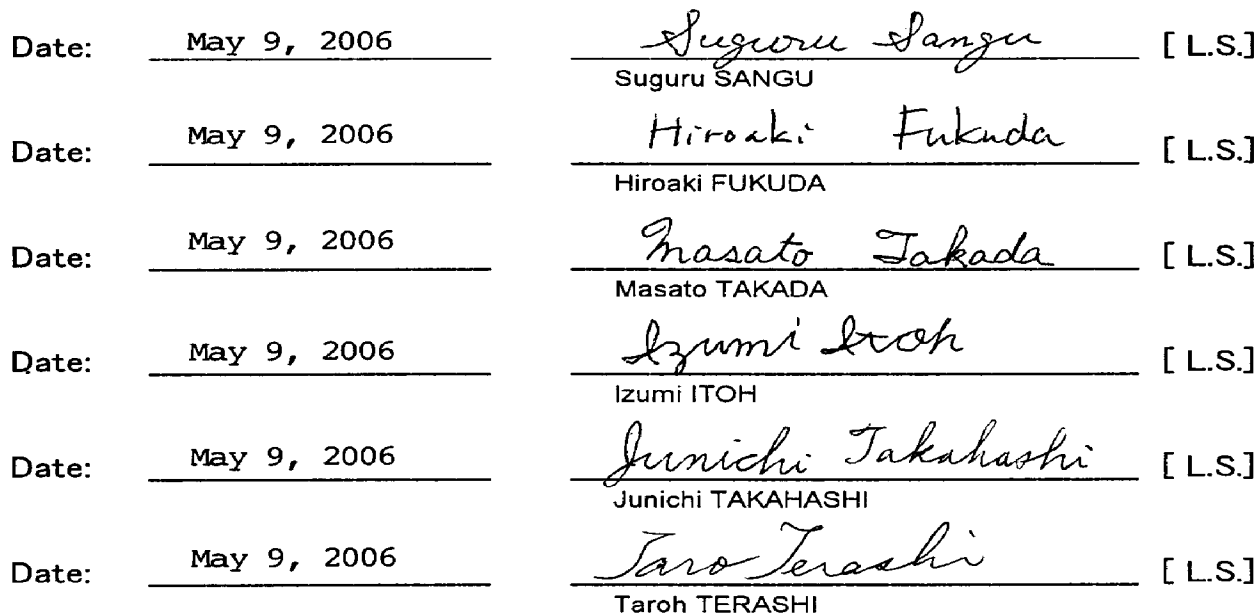 Date: May 9, 2006 Suguru Sangu [ L.S.]
Suguru SANGU
Date: May 9, 2006 Hiroaki Fukuda [ L.S.]
Hiroaki FUKUDA
Date: May 9, 2006 Masato Takada [ L.S.]
Masato TAKADA
Date: May 9, 2006 Izumi Itoh [ L.S.]
Izumi ITOH
Date: May 9, 2006 Junichi Takahashi [ L.S.]
Junichi TAKAHASHI
Date: May 9, 2006 Taro Terashi [ L.S.]
Taroh TERASHI